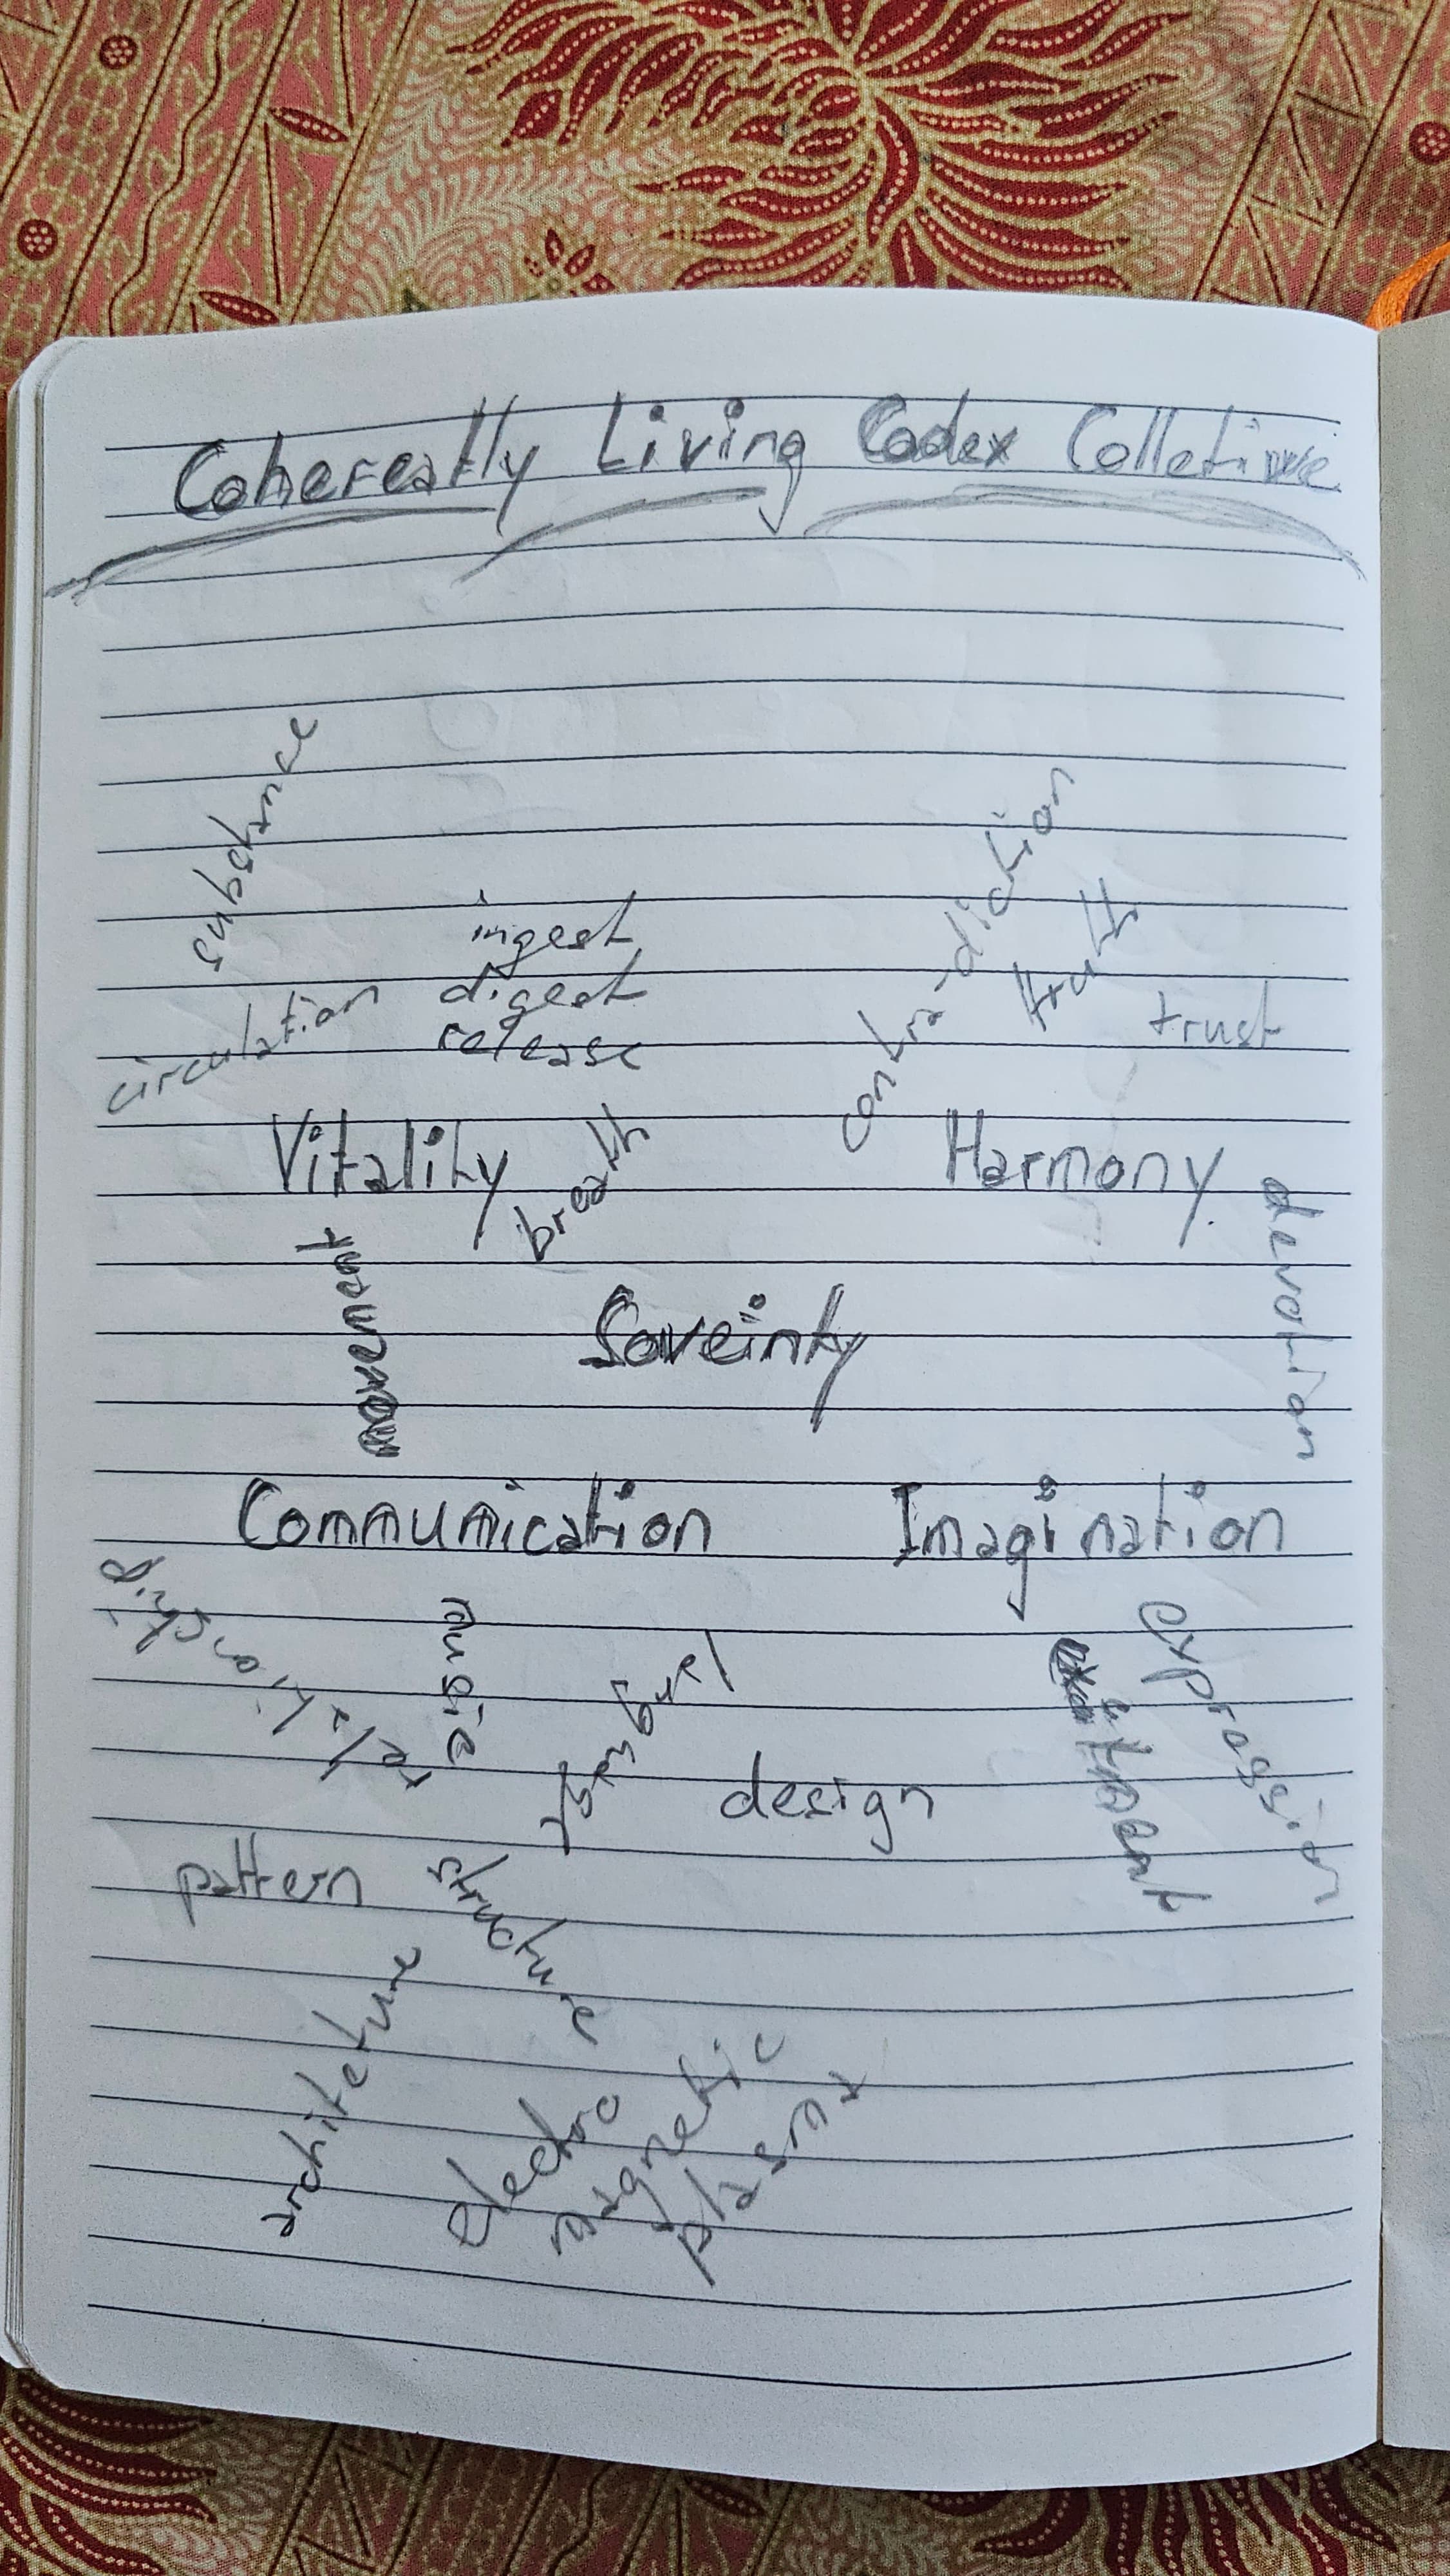 Cohereatly Living Codex Colletive
substance
contra-diction
ingest
truth
digest
circulation
trust
release
Vitality
breath
Harmony
movement
devotion
Soveinty
Communication
Imagination
relationship
music
expression
design
pattern
structure
architeture
electro
magnetic
plasma